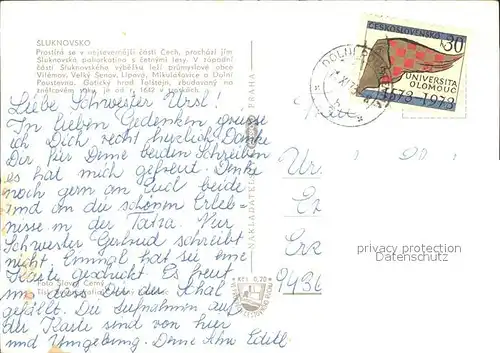 ŠLUKNOVSKO
Prostírá se v nejsevernější části Čech, prochází jím
Šluknovská pahorkatina s četnými lesy. V západní
části Šluknovského výběžku leží průmyslové obce
Vilémov, Velký Šenov, Lipová, Mikulášovice a Dolní
Poustevna. Gotický hrad Tolštejn, zbudovaný na
znělcovém je od r. 1642 v troskách.
Liebe Schwester Ursl!
In lieben Gedenken grüsse
ich Dich recht herzlich. Danke
Dir für Deine beiden Schreiben
es hat mich gefreut. Denke
noch gern an Euch beide
und an die schönen Erleb-
nisse in der Tatra. Nur
Schwester Gertrud schreibt
nicht. Einmal hat sie eine
Karte geschickt. Es freut
mich dass Dir der Schal
gefällt. Die Aufnahmen auf
der Karte sind von hier
und Umgebung. Deine Edith
Foto Slavoj Černý
NAKLADATELSTVÍ PRAHA
Kčs 0,70
ČESKOSLOVENSKO
30
UNIVERSITA
OLOMOUC
1573-1973
DOLNÍ
Ur
Er
9436
copyright protected
www.ansichtskartenversand.com